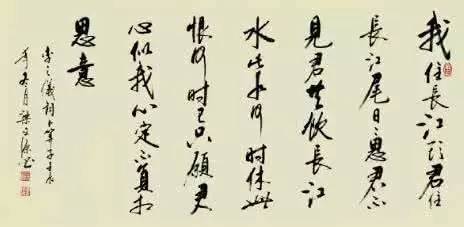 我住長江頭君住
長江尾日々思君不
見君共飲長江
水此水何時休此
恨何時已只願君
心似我心定不負相
思意
李之儀詞卜算子壬辰
年冬月梁文書